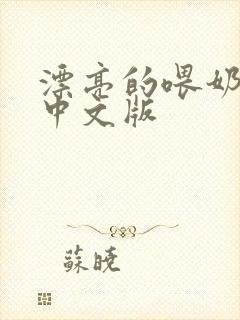 漂亮的喂奶
中文版
蘇曉